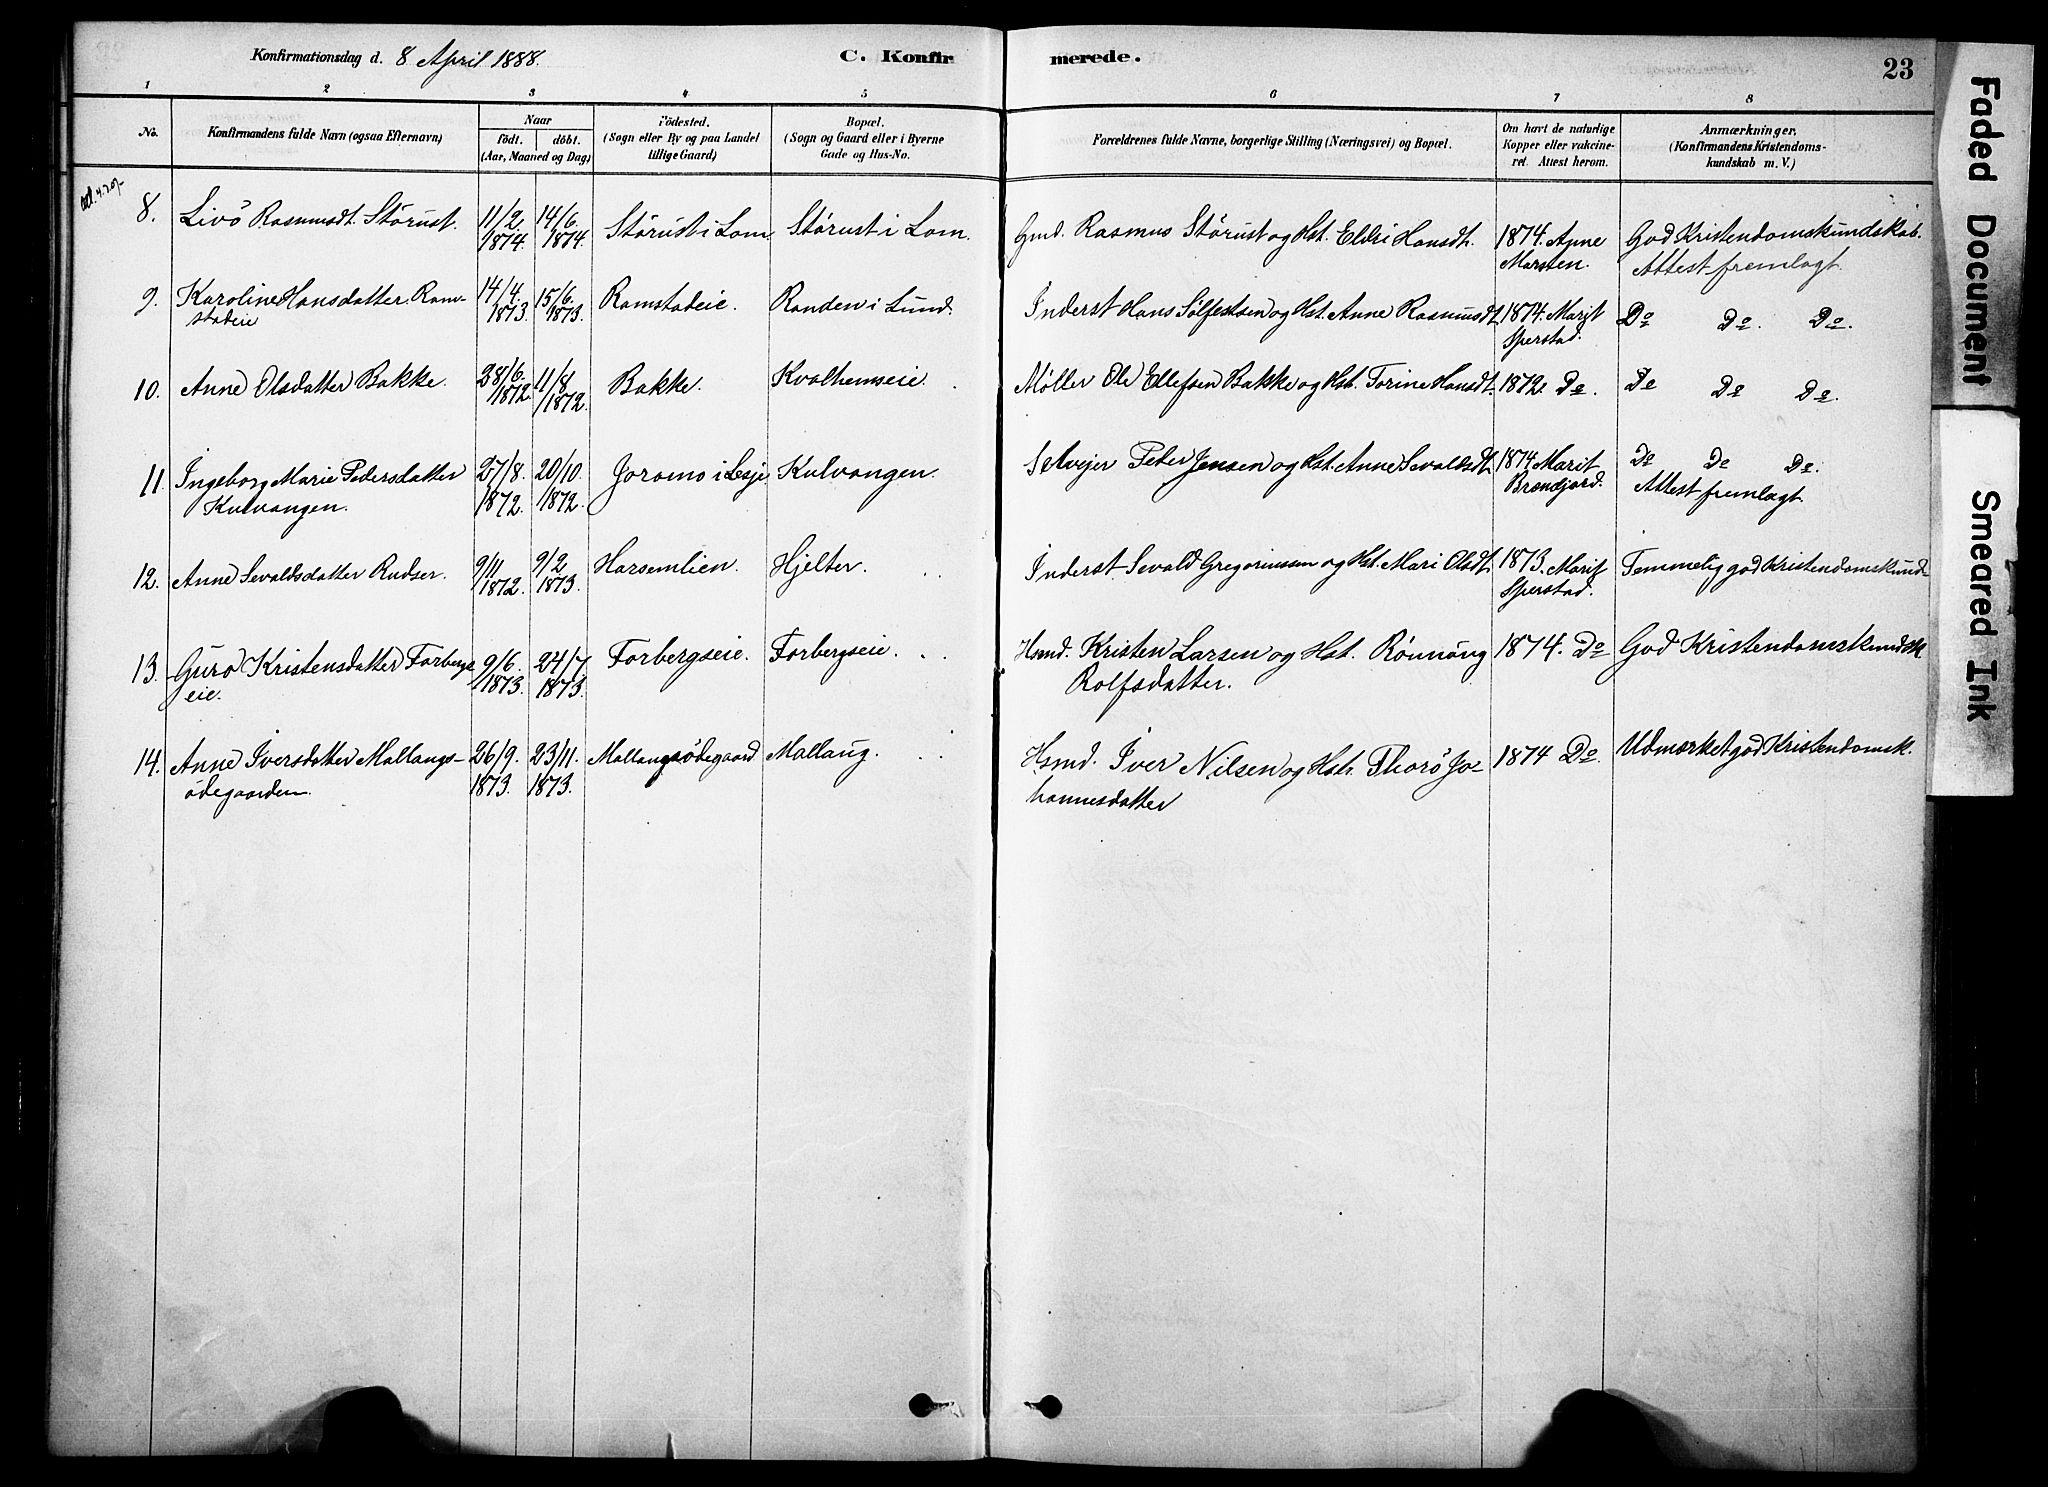 Konfirmationsdag d. 8 April 1888.
C. Konfirmerede.
23
1 2 3 4 5 6 7 8
No.
Konfirmandens fulde Navn (ogsaa Efternavn)
Naar
födt. döbt.
(Aar, Maaned og Dag)
Födested.
(Sogn eller By og paa Landet
tillige Gaard)
Bopæl.
(Sogn og Gaard eller i Byerne
Gade og Hus-No.
Forældrenes fulde Navne, borgerlige Stilling (Næringsvei) og Bopæl.
Om havt de naturlige
Kopper eller vakcine-
ret. Attest herom.
Anmærkninger.
(Konfirmandens Kristendoms-
kundskab m. V.)
8. Livö Rasmusdt. Störust. 11/2 1874. 14/6 1874. Störust i Lom. Störust i Lom. Gmd. Rasmus Störust og Hst. Eldri Hansdt. 1874. Anne God Kristendomskundskab.
Marsten. Attest fremlagt.
9. Karoline Hansdatter Ram- 14/4. 1873. 15/6. 1873. Ramstadeie. Randen i Lund. Inderst Hans Sölfestsen og Hst. Anne Rasmusdt. 1874. Marit Do Do. Do.
stadeie Sperstad.
10. Anne Olsdatter Bakke. 28/6. 1872. 11/8. 1872. Bakke. Kvalhemseie. Möller Ole Ellefsen Bakke og Hst. Torine Hansdt. 1872. Do. Do Do Do.
11. Ingeborg Marie Pedersdatter 27/8. 1872. 20/10. 1872. Joramo i Lesje Kulvangen. Selveier Peter Jensen og Hst. Anne Sevaldsdt. 1874 Marit Do Do Do.
Kulvangen. Brændjord. Attest fremlagt.
12. Anne Sevaldsdatter Rudser. 9/11 1872. 9/2 1873. Harsemlien. Hjelter. Inderst Sevald Gregoriussen og Hst. Mari Olsdt. 1873. Marit Temmelig god Kristendomskund-
Sperstad.
13. Guro Kristensdatter Forbergs 9/6. 1873. 24/7 1873. Forbergseie. Forbergseie. Hsmd. Kristen Larsen og Hst. Rönnöug 1874. Do God Kristendomskundsk.
eie. Rolfsdatter.
14. Anne Iversdatter Mallangs- 26/9. 1873. 23/11. 1873. Mallangsödegaard Mallaug. Hsmd. Iver Nilsen og Hst. Thorö Jo- 1874 Do. Udmærket god Kristendomsk.
ödegaarden. hannesdatter
Faded Document
Smeared Ink